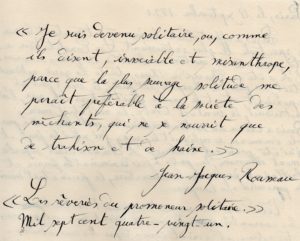 « Je suis devenu solitaire, ou, comme
ils disent, insociable et misanthrope,
parce que la plus sauvage solitude me
paraît préférable à la société des
méchants, qui ne se nourrit que
de trahison et de haine. »
Jean-Jacques Rousseau
« Les rêveries du promeneur solitaire. »
Mil sept cent quatre-vingt-un.